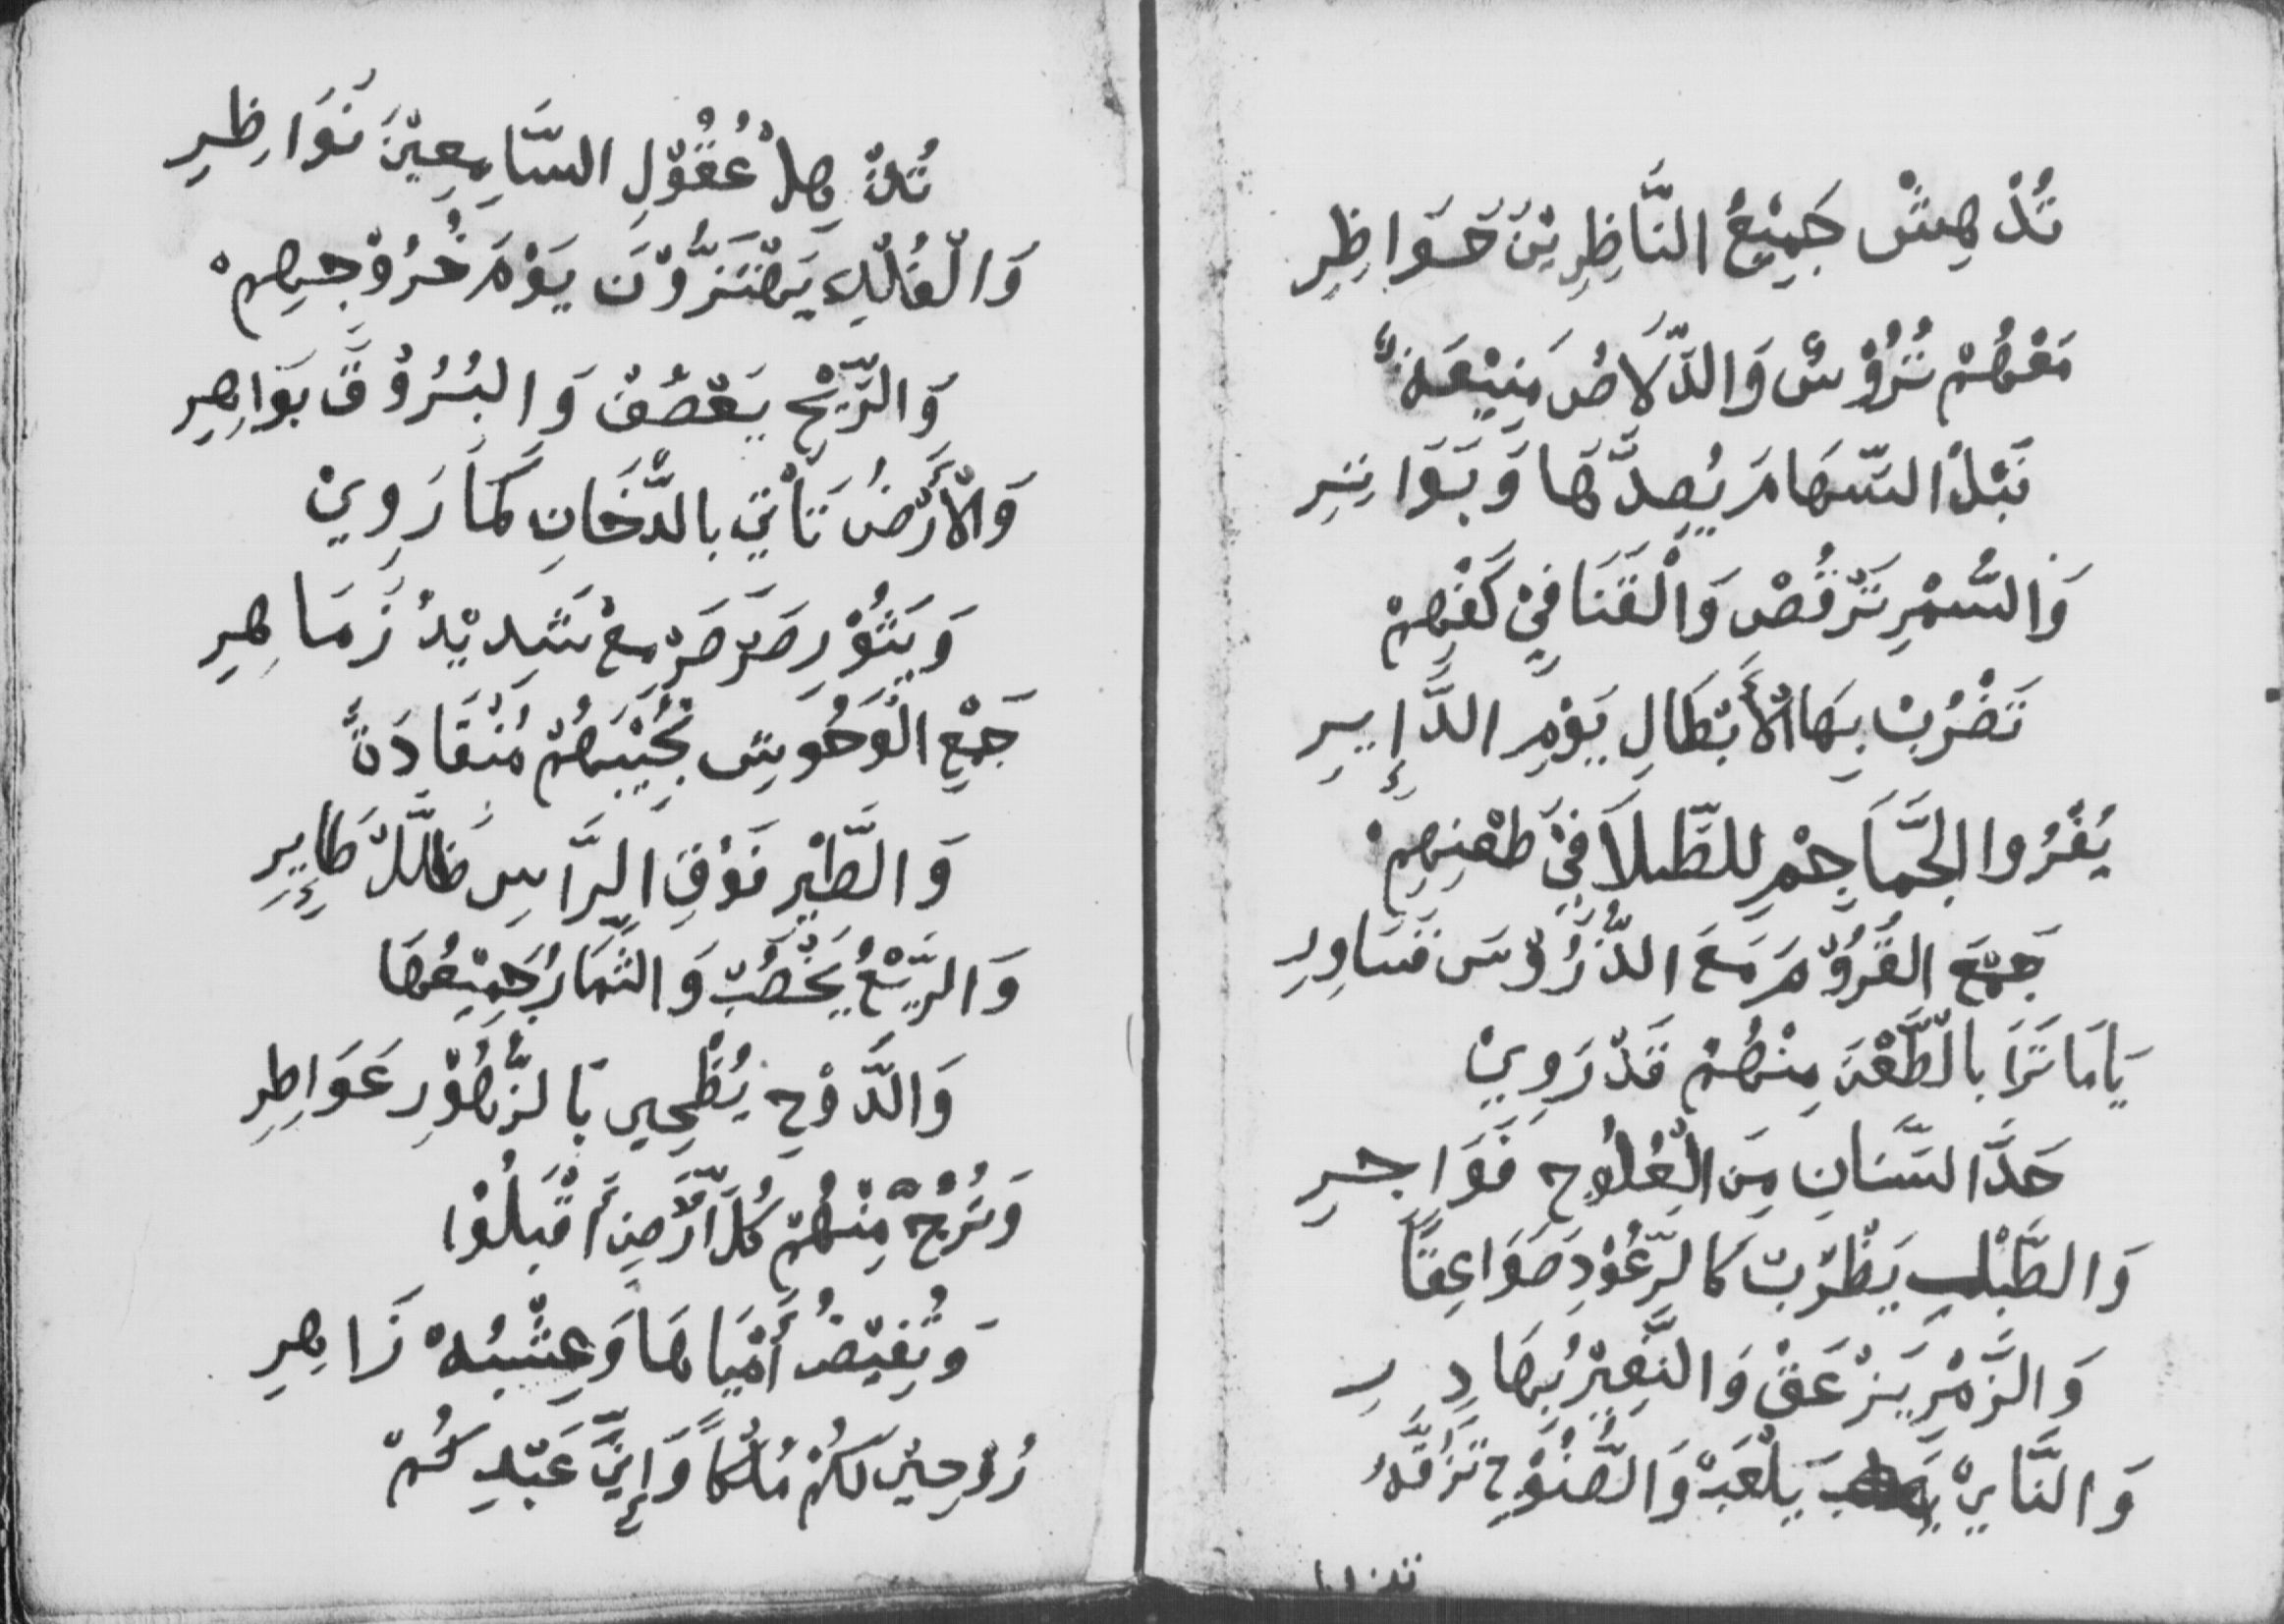 تُذْهِشْ جَمِيْعُ النَّاظِرِيْنَ حَوَاظِرِ
مَعْهُمْ تُرُوْسٌ وَالدِّلَاصُ مَنِيْعَةٌ
نَبْلُ السِّهَامَ يُصِدَّهَا وَبَوَاتِرِ
وَالسُّمْرِ تَرْقُصْ وَالْقَنَا فِيْ كَفِّهِمْ
تَضْرُبْ بِهَا الْأَبْطَالِ يَوْمِ الدَّإِيرِ
يُفْرُوا الجَّمَاجِمِ لِلطِّلَا فِيْ طَعْنِهِمْ
جَمْعَ القُرُوْمَ مَعَ الدُّرُوْسَ قَسَاوِرِ
يَامَا تَرَا بِالطَّعْنَ مِنْهُمْ قَدْ رَوِيْ
حَدَّ السَّنَانِ مِنَ الْعُلُوْجِ فَوَاجِرِ
وَالطَّبْلِ يَظْرُبْ كَالرِّعُوْدِ صَوَاعِقًا
وَالزَّمْرِ يَزْعَقْ وَالنَّفِيْرُ بُهَادِرِ
وَالنَّايْ يَلْعَبْ وَالصُّنُوْجِ تَزُقَّهُ
تُذْهِلْ عُقُوْلِ السَّامِعِيْنَ نَوَاظِرِ
وَالْفُلْكِ يَهْتَزُّوْنَ يَوْمَ خُرُوْجِهِمْ
وَالرِّيْحْ يَعْصُفْ وَالبُرُوْقَ بَوَاهِرِ
وَالْأَرْضُ تَأْتِيْ بالدُّخَانِ كَمَا رَوِيْ
وَيَثُوْرِ صَرْصَرْ مِعْ شَدِيْدُ زَمَاهِرِ
جَمْعِ الْوَحُوشِ تُجِيْبَهُمْ مُنْقَادَةً
وَالطَّيْرِ فَوْقِ الرَّاسِ ظَلَّلْ طَإِيرِ
وَالرِّيْعُ يَخْصُبْ وَالثِّمَارُ جَمِيْعُهَا
وَالدَّوْحِ يُظْحِي بَالزُّهُوْرِ عَوَاطِرِ
وَتَرُجُّ مِنْهُمْ كُلَّ أَرْضٍ أَقْبَلُوْا
وَتُفِيْضُ أَمْيَاهَا وَعِشْبُهْ زَاهِرِ
رُوْحِيْ لَكُمْ مُلْكًا وَإِنِّيَ عَبْدِكُمْ